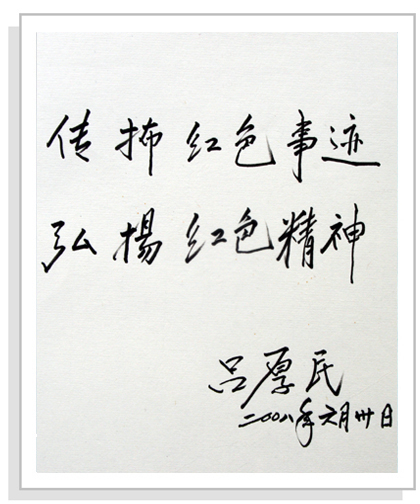 传抪红色事迹
弘揚红色精神
吕厚民
二〇〇八年六月卅日